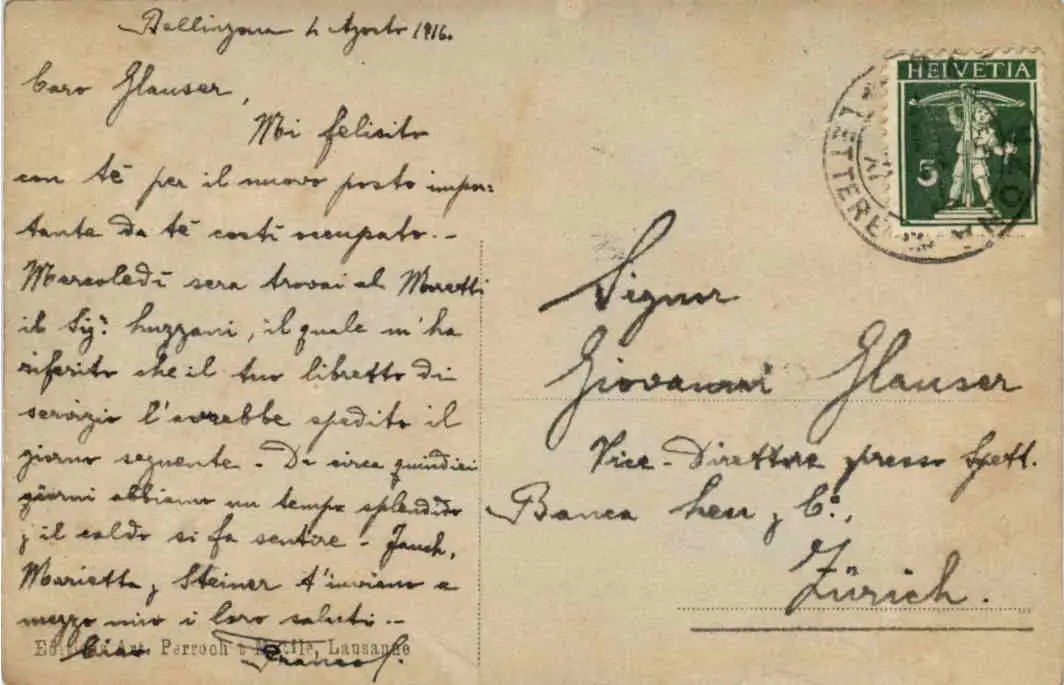 Bellinzona 4 Agosto 1916.
Caro Glauser,
Mi felicito
con tè per il nuovo posto impor=
tante da tè costì occupato. –
Mercoledì sera trovai al Moretti
il Sig.r Luzzani, il quale m'ha
riferito che il tuo libretto di
servizio l'avrebbe spedito il
giorno seguente – Da circa quindici
giorni abbiamo un tempo splendido
, il caldo si fa sentire – Jauch,
Marietta, Steiner t'inviano a
mezzo mio i loro saluti. –
Ciao Franco
Perroch Lausanne
HELVETIA
5
LETTERE
Signor
Giovanni Glauser
Vice-Direttore presso Spett.
Banca Leu, C.o,
Zürich.